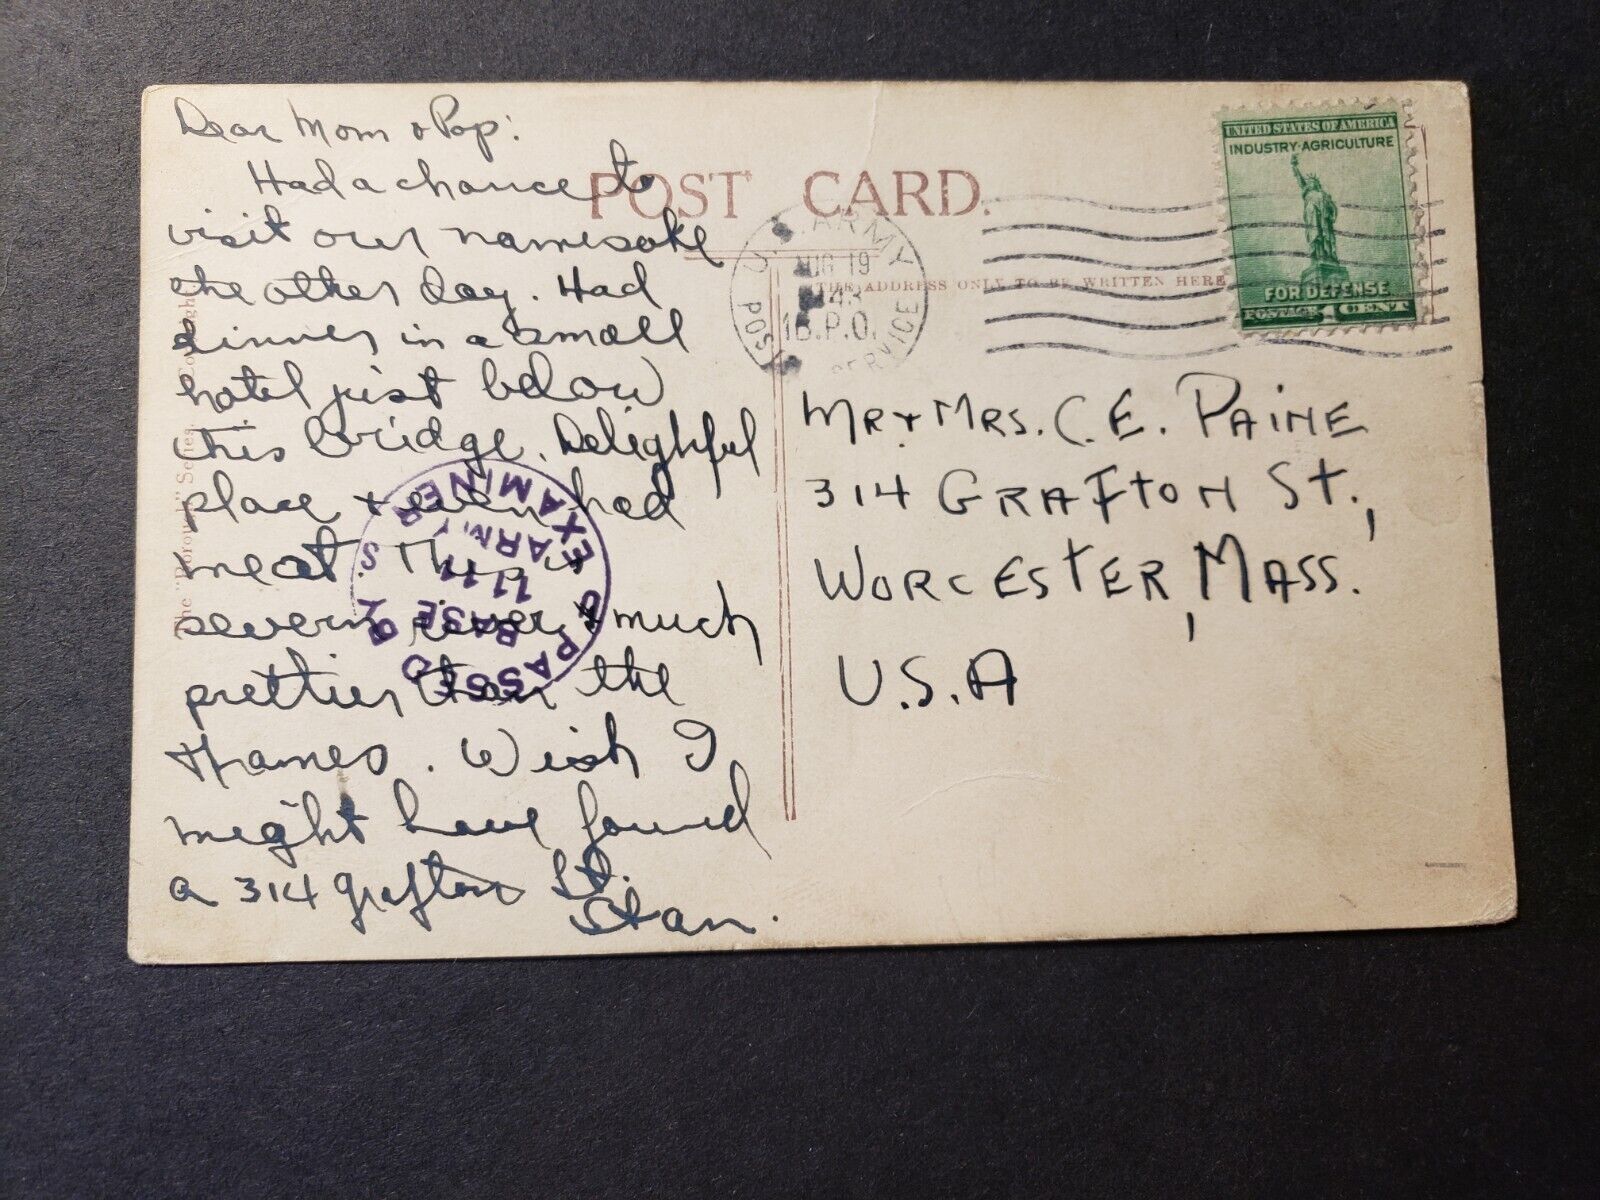 Dear Mom & Pop:
Had a chance to
visit our namesake
the other day. Had
dinner in a small
hotel just below
this bridge. Delightful
place & even had
meat. This is
severn river & much
prettier than the
Thames. Wish I
might have found
a 314 Grafton St.
Stan.
POST CARD.
THE ADDRESS ONLY TO BE WRITTEN HERE
U.S. ARMY
AUG 19
1943
B.P.O.
POSTAL SERVICE
UNITED STATES OF AMERICA
INDUSTRY·AGRICULTURE
FOR DEFENSE
POSTAGE 1 CENT
MR & MRS. C. E. PAINE
314 GRAFTON ST.,
WORCESTER, MASS.
U.S.A
PASSED BY
BASE
1111
ARMY
EXAMINER
U. S.
The "Borough" Series,